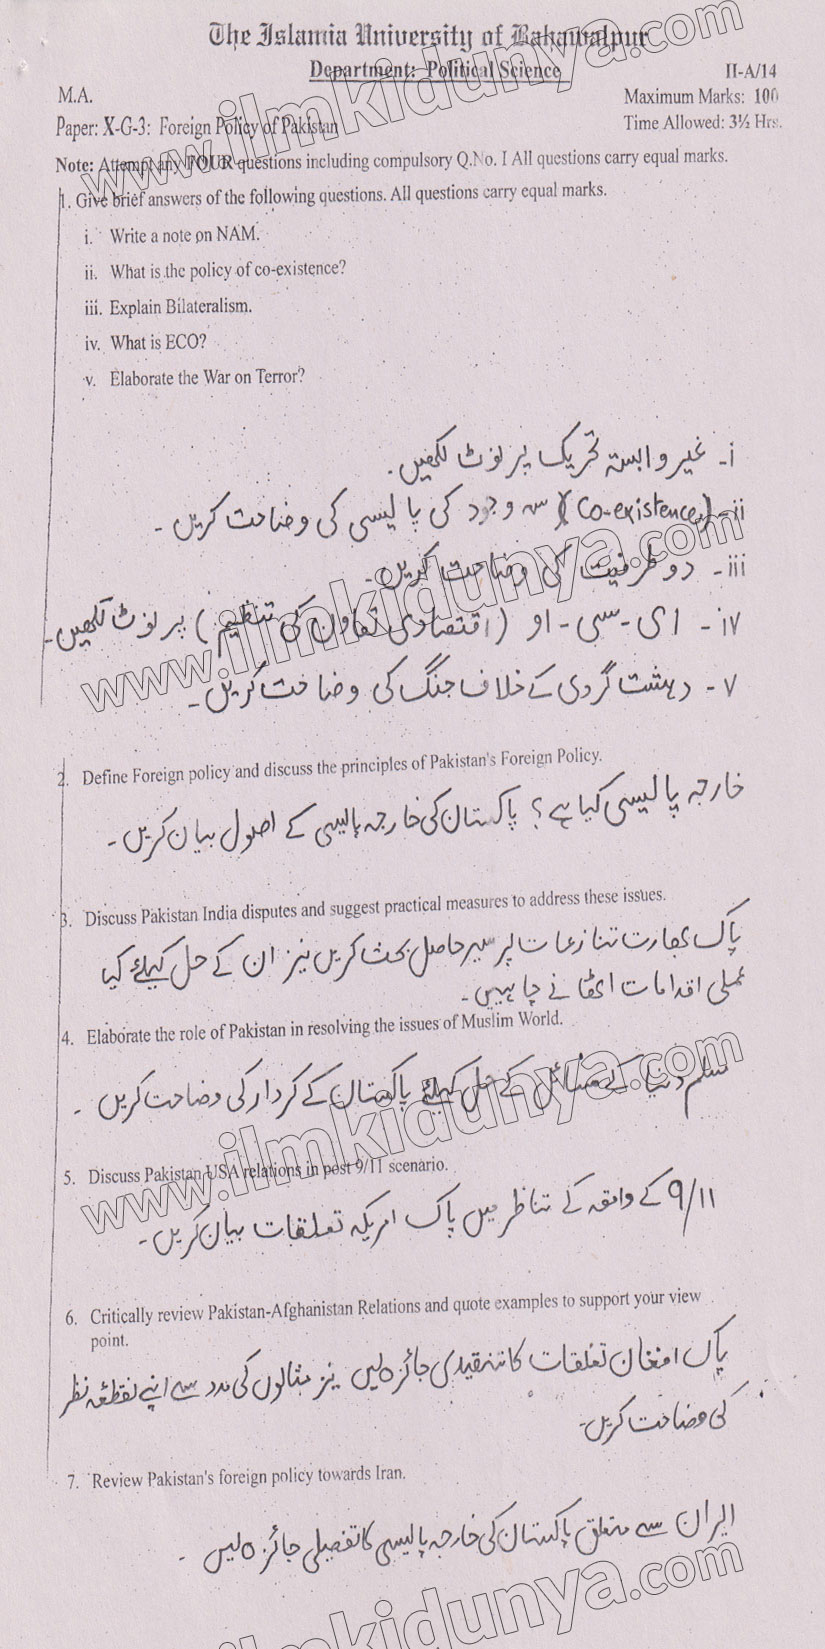 The Islamia University of Bahawalpur
Department: Political Science
II-A/14
M.A.
Maximum Marks: 100
Paper: X-G-3: Foreign Policy of Pakistan
Time Allowed: 3½ Hrs.
Note: Attempt any FOUR questions including compulsory Q.No. I All questions carry equal marks.
1. Give brief answers of the following questions. All questions carry equal marks.
i. Write a note on NAM.
ii. What is the policy of co-existence?
iii. Explain Bilateralism.
iv. What is ECO?
v. Elaborate the War on Terror?
i- غیر وابستہ تحریک پر نوٹ لکھیں۔
ii- (Co-existence) وجود کی پالیسی کی وضاحت کریں۔
iii- دو طرفیت کی وضاحت کریں۔
iv- ای-سی-او (اقتصادی تعاون کی تنظیم) پر نوٹ لکھیں۔
v- دہشت گردی کے خلاف جنگ کی وضاحت کریں۔
2. Define Foreign policy and discuss the principles of Pakistan's Foreign Policy.
خارجہ پالیسی کیا ہے؟ پاکستان کی خارجہ پالیسی کے اصول بیان کریں۔
3. Discuss Pakistan India disputes and suggest practical measures to address these issues.
پاک بھارت تنازعات پر سیر حاصل بحث کریں نیز ان کے حل کیلئے کیا
عملی اقدامات اٹھانے چاہییں۔
4. Elaborate the role of Pakistan in resolving the issues of Muslim World.
مسلم دنیا کے مسائل کے حل کیلئے پاکستان کے کردار کی وضاحت کریں۔
5. Discuss Pakistan USA relations in post 9/11 scenario.
9/11 کے واقعہ کے تناظر میں پاک امریکہ تعلقات بیان کریں۔
6. Critically review Pakistan-Afghanistan Relations and quote examples to support your view
point.
پاک افغان تعلقات کا تنقیدی جائزہ لیں نیز مثالوں کی مدد سے اپنے نقطہ نظر
کی وضاحت کریں۔
7. Review Pakistan's foreign policy towards Iran.
ایران سے متعلق پاکستان کی خارجہ پالیسی کا تفصیلی جائزہ لیں۔
www.ilmkidunya.com
www.ilmkidunya.com
www.ilmkidunya.com
ilmkidunya.com